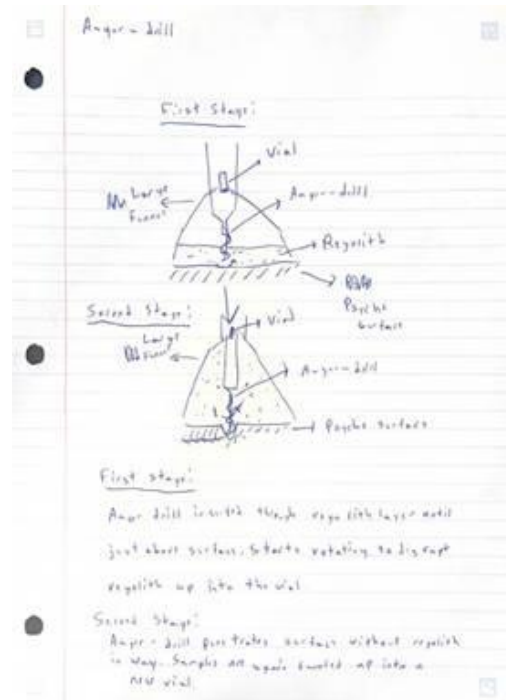 Auger-drill
First Stage:
Vial
Large
Funnel
Auger-drill
Regolith
Psyche
Surface
Second Stage:
Vial
Large
Funnel
Auger-drill
Psyche surface
First stage:
Auger drill inserted through regolith layer until
just above surface; starts rotating to disrupt
regolith up into the vial
Second Stage:
Auger-drill penetrates surface without regolith
in way. Samples are again funneled up into a
new vial.